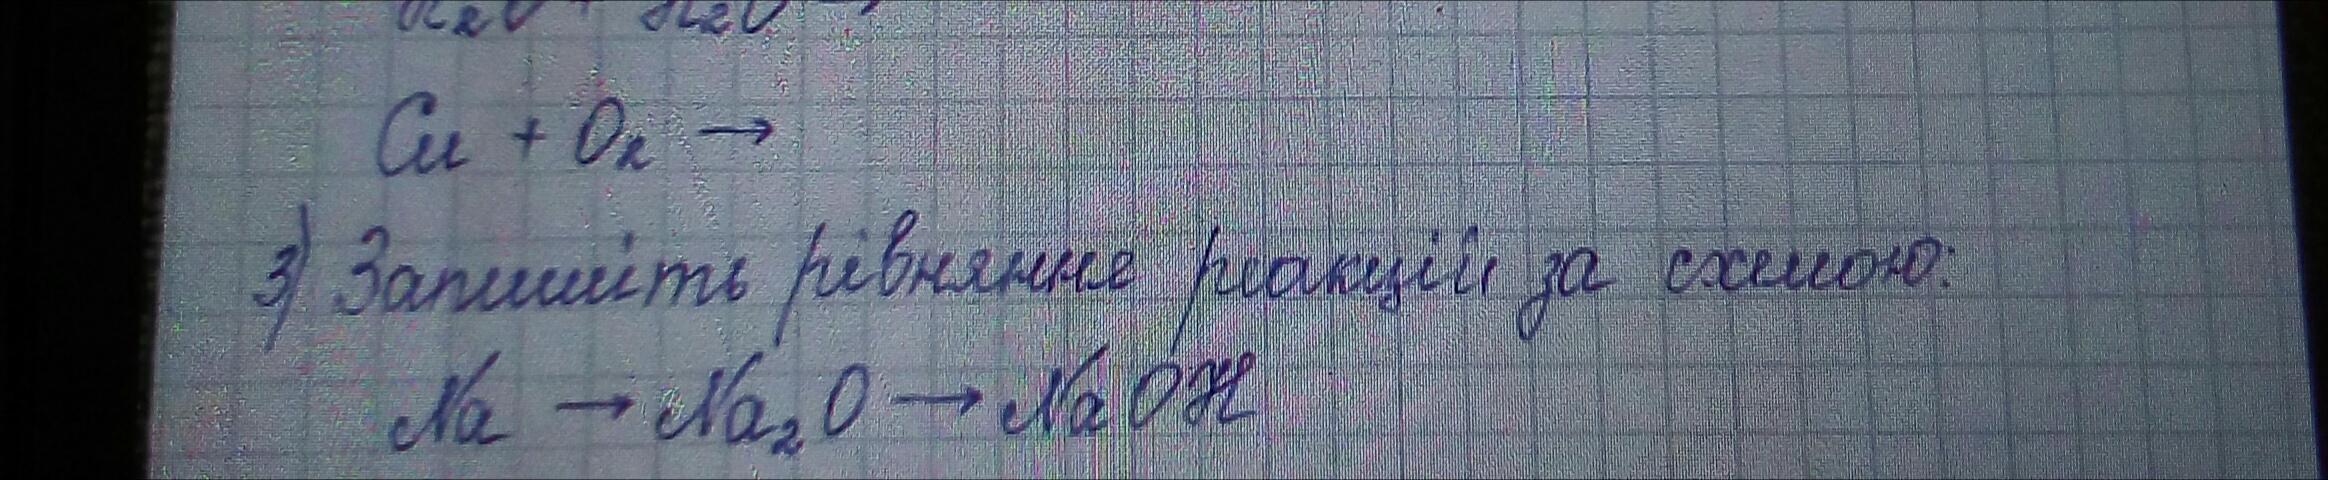 K₂O + H₂O
Cu + O₂ →
3) Запишіть рівняння реакцій за схемою:
Na → Na₂O → NaOH